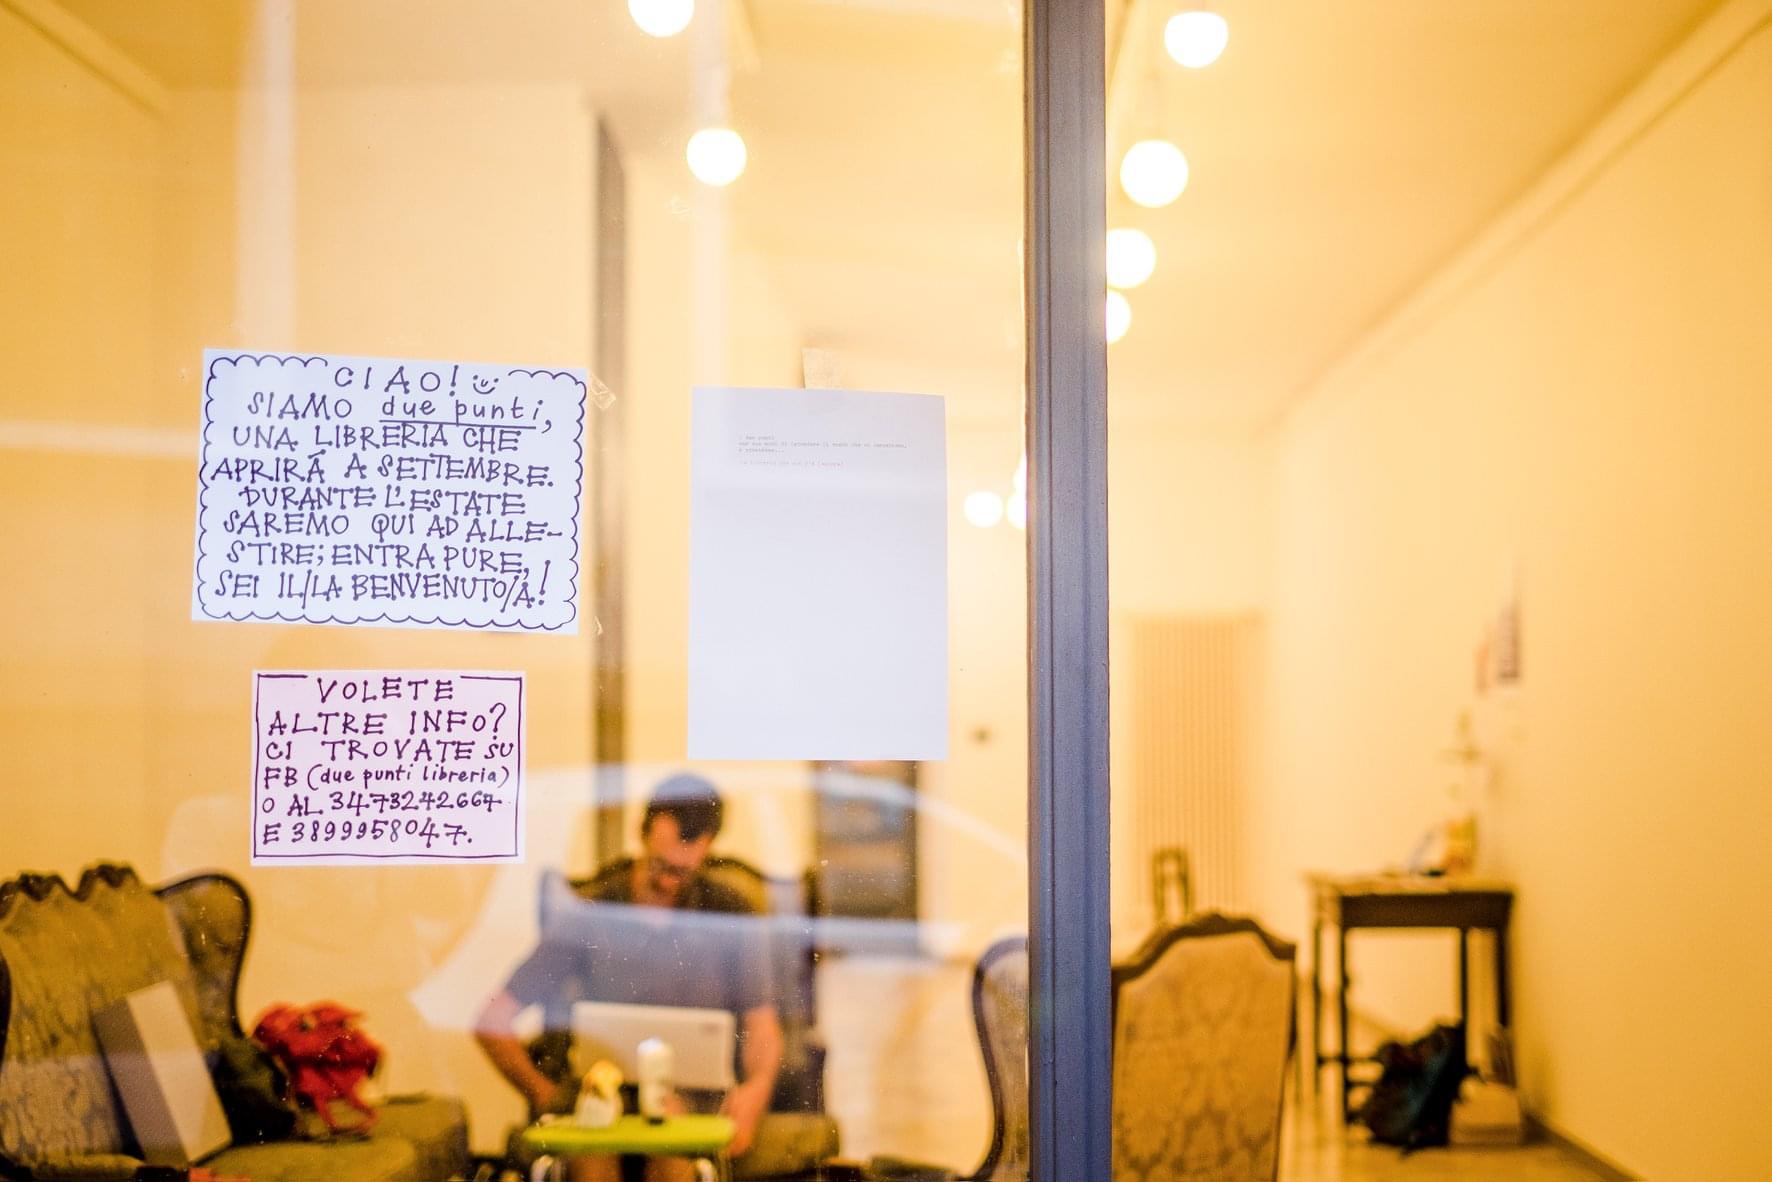 CIAO!
SIAMO due punti,
UNA LIBRERIA CHE
APRIRÁ A SETTEMBRE.
DURANTE L'ESTATE
SAREMO QUI AD ALLE-
STIRE; ENTRA PURE,
SEI IL/LA BENVENUTO/A!
VOLETE
ALTRE INFO?
CI TROVATE SU
FB (due punti libreria)
O AL 3473242667
E 3899958047.